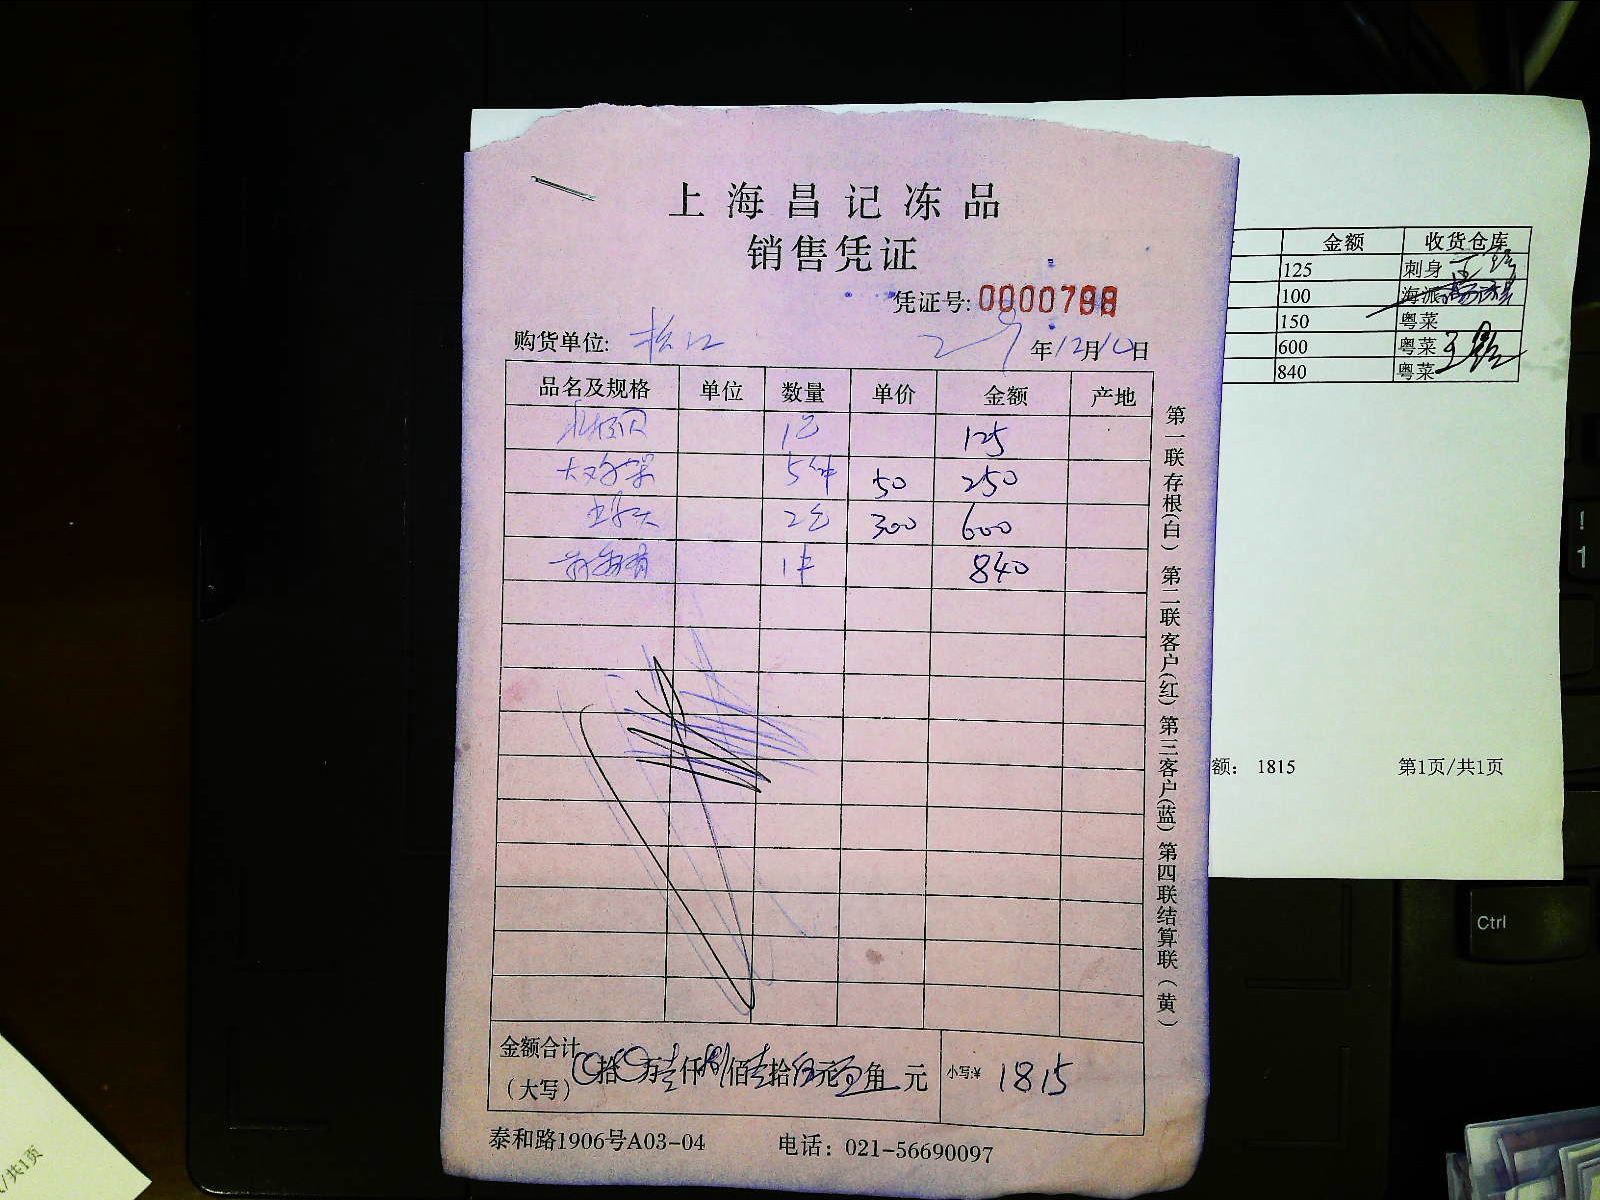 上海昌记冻品
销售凭证
凭证号: 0000798
购货单位: 松江 年12月10日
品名及规格 单位 数量 单价 金额 产地
125
大鸡架 5件 50 250
2包 300 600
1件 840
金额合计(大写) 拾 万壹仟捌佰壹拾伍元 角 元 小写:¥ 1815
泰和路1906号A03-04 电话: 021-56690097
第一联存根(白) 第二联客户(红) 第三客户(蓝) 第四联结算联(黄)
金额 收货仓库
125 刺身
100 海派
150 粤菜
600 粤菜
840 粤菜
额: 1815 第1页/共1页
/共1页
Ctrl
!
1